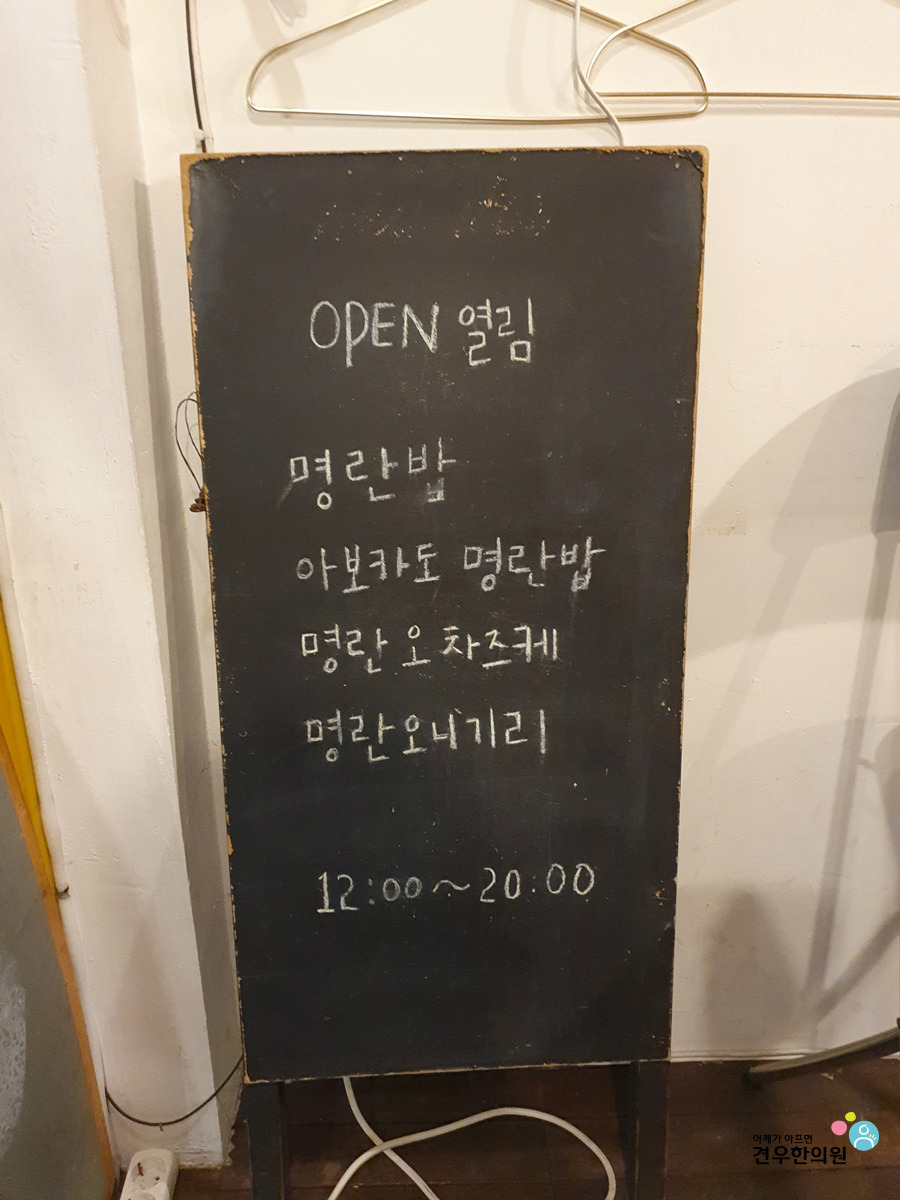 OPEN 열림
명란밥
아보카도 명란밥
명란 오차즈케
명란오니기리
12:00~20:00
어깨가 아프면
견우한의원